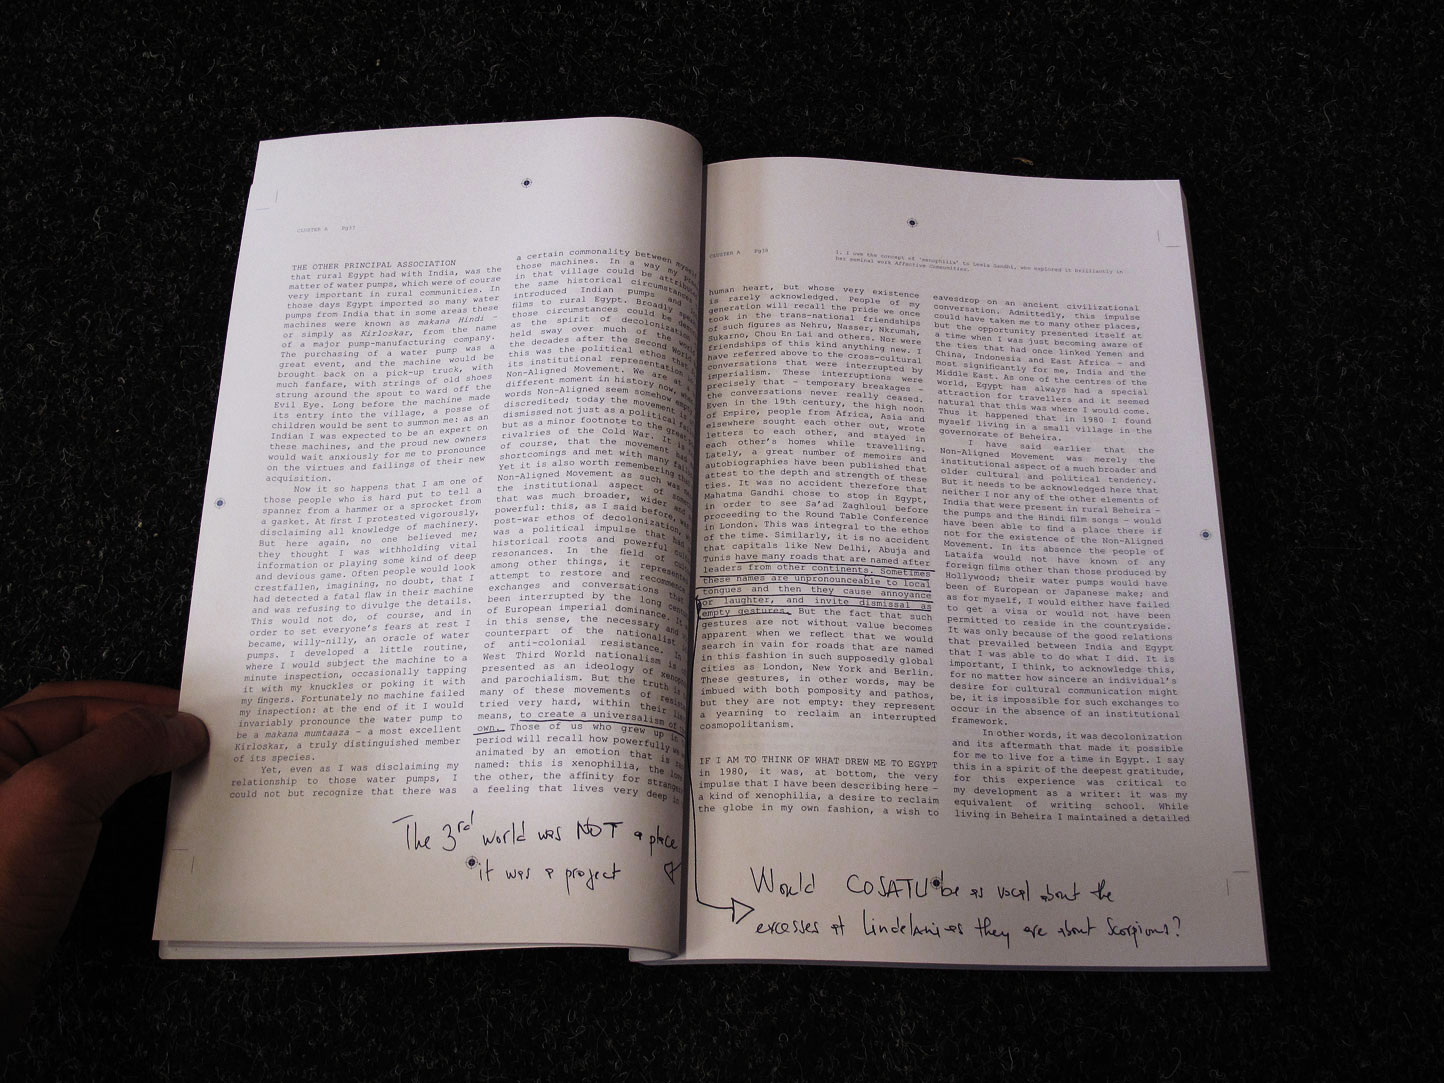 CLUSTER A Pg37
THE OTHER PRINCIPAL ASSOCIATION
that rural Egypt had with India, was the
matter of water pumps, which were of course
very important in rural communities. In
those days Egypt imported so many water
pumps from India that in some areas these
machines were known as makana Hindi –
or simply as Kirloskar, from the name
of a major pump-manufacturing company.
The purchasing of a water pump was a
great event, and the machine would be
brought back on a pick-up truck, with
much fanfare, with strings of old shoes
strung around the spout to ward off the
Evil Eye. Long before the machine made
its entry into the village, a posse of
children would be sent to summon me: as an
Indian I was expected to be an expert on
these machines, and the proud new owners
would wait anxiously for me to pronounce
on the virtues and failings of their new
acquisition.
Now it so happens that I am one of
those people who is hard put to tell a
spanner from a hammer or a sprocket from
a gasket. At first I protested vigorously,
disclaiming all knowledge of machinery.
But here again, no one believed me;
they thought I was withholding vital
information or playing some kind of deep
and devious game. Often people would look
crestfallen, imagining, no doubt, that I
had detected a fatal flaw in their machine
and was refusing to divulge the details.
This would not do, of course, and in
order to set everyone's fears at rest I
became, willy-nilly, an oracle of water
pumps. I developed a little routine,
where I would subject the machine to a
minute inspection, occasionally tapping
it with my knuckles or poking it with
my fingers. Fortunately no machine failed
my inspection: at the end of it I would
invariably pronounce the water pump to
be a makana mumtaaza – a most excellent
Kirloskar, a truly distinguished member
of its species.
Yet, even as I was disclaiming my
relationship to those water pumps, I
could not but recognize that there was
a certain commonality between myself
those machines. In a way my
in that village could be
the same historical circumstances
introduced Indian pumps and
films to rural Egypt. Broadly
those circumstances could be
as the spirit of decolonization
held sway over much of the
the decades after the Second World
this was the political ethos that
its institutional representation
Non-Aligned Movement. We are at a
different moment in history now,
words Non-Aligned seem somehow
discredited; today the movement is
dismissed not just as a political
but as a minor footnote to the great
rivalries of the Cold War. It is
of course, that the movement had
shortcomings and met with many
Yet it is also worth remembering that
Non-Aligned Movement as such was
the institutional aspect of
that was much broader, wider and
powerful: this, as I said before, was
post-war ethos of decolonization,
was a political impulse that had
historical roots and powerful
resonances. In the field of
among other things, it represented
attempt to restore and recommence
exchanges and conversations that
been interrupted by the long
of European imperial dominance. It
in this sense, the necessary and
counterpart of the nationalist
of anti-colonial resistance. In
West Third World nationalism is
presented as an ideology of
and parochialism. But the truth is
many of these movements of
tried very hard, within their
means, to create a universalism of
own. Those of us who grew up in
period will recall how powerfully we
animated by an emotion that is
named: this is xenophilia, the love
the other, the affinity for strangers
a feeling that lives very deep in
The 3rd world was NOT a place
it was a project
CLUSTER A Pg38
1. I owe the concept of 'xenophilia' to Leela Gandhi, who explored it brilliantly in
her seminal work Affective Communities.
human heart, but whose very existence
is rarely acknowledged. People of my
generation will recall the pride we once
took in the trans-national friendships
of such figures as Nehru, Nasser, Nkrumah,
Sukarno, Chou En Lai and others. Nor were
friendships of this kind anything new. I
have referred above to the cross-cultural
conversations that were interrupted by
imperialism. These interruptions were
precisely that – temporary breakages –
the conversations never really ceased.
Even in the 19th century, the high noon
of Empire, people from Africa, Asia and
elsewhere sought each other out, wrote
letters to each other, and stayed in
each other's homes while travelling.
Lately, a great number of memoirs and
autobiographies have been published that
attest to the depth and strength of these
ties. It was no accident therefore that
Mahatma Gandhi chose to stop in Egypt,
in order to see Sa'ad Zaghloul before
proceeding to the Round Table Conference
in London. This was integral to the ethos
of the time. Similarly, it is no accident
that capitals like New Delhi, Abuja and
Tunis have many roads that are named after
leaders from other continents. Sometimes
these names are unpronounceable to local
tongues and then they cause annoyance
or laughter, and invite dismissal as
empty gestures. But the fact that such
gestures are not without value becomes
apparent when we reflect that we would
search in vain for roads that are named
in this fashion in such supposedly global
cities as London, New York and Berlin.
These gestures, in other words, may be
imbued with both pomposity and pathos,
but they are not empty: they represent
a yearning to reclaim an interrupted
cosmopolitanism.
IF I AM TO THINK OF WHAT DREW ME TO EGYPT
in 1980, it was, at bottom, the very
impulse that I have been describing here –
a kind of xenophilia, a desire to reclaim
the globe in my own fashion, a wish to
eavesdrop on an ancient civilizational
conversation. Admittedly, this impulse
could have taken me to many other places,
but the opportunity presented itself at
a time when I was just becoming aware of
the ties that had once linked Yemen and
China, Indonesia and East Africa – and
most significantly for me, India and the
Middle East. As one of the centres of the
world, Egypt has always had a special
attraction for travellers and it seemed
natural that this was where I would come.
Thus it happened that in 1980 I found
myself living in a small village in the
governorate of Beheira.
I have said earlier that the
Non-Aligned Movement was merely the
institutional aspect of a much broader and
older cultural and political tendency.
But it needs to be acknowledged here that
neither I nor any of the other elements of
India that were present in rural Beheira –
the pumps and the Hindi film songs – would
have been able to find a place there if
not for the existence of the Non-Aligned
Movement. In its absence the people of
Lataifa would not have known of any
foreign films other than those produced by
Hollywood; their water pumps would have
been of European or Japanese make; and
as for myself, I would either have failed
to get a visa or would not have been
permitted to reside in the countryside.
It was only because of the good relations
that prevailed between India and Egypt
that I was able to do what I did. It is
important, I think, to acknowledge this,
for no matter how sincere an individual's
desire for cultural communication might
be, it is impossible for such exchanges to
occur in the absence of an institutional
framework.
In other words, it was decolonization
and its aftermath that made it possible
for me to live for a time in Egypt. I say
this in a spirit of the deepest gratitude,
for this experience was critical to
my development as a writer: it was my
equivalent of writing school. While
living in Beheira I maintained a detailed
Would COSATU be as vocal about the
excesses at Lindelani as they are about Scorpions?